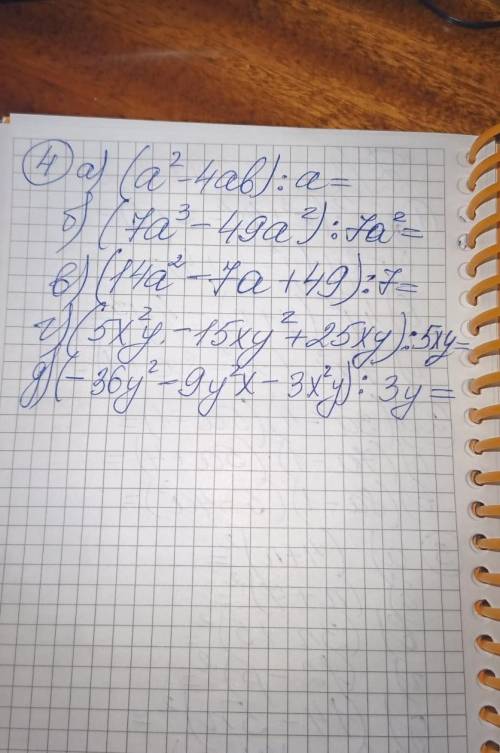 4 а) (a² - 4ab) : a =
б) (7a³ - 49a²) : 7a² =
в) (14a² - 7a + 49) : 7 =
г) (5x²y - 15xy² + 25xy) : 5xy =
д) (-36y² - 9y²x - 3x²y) : 3y =